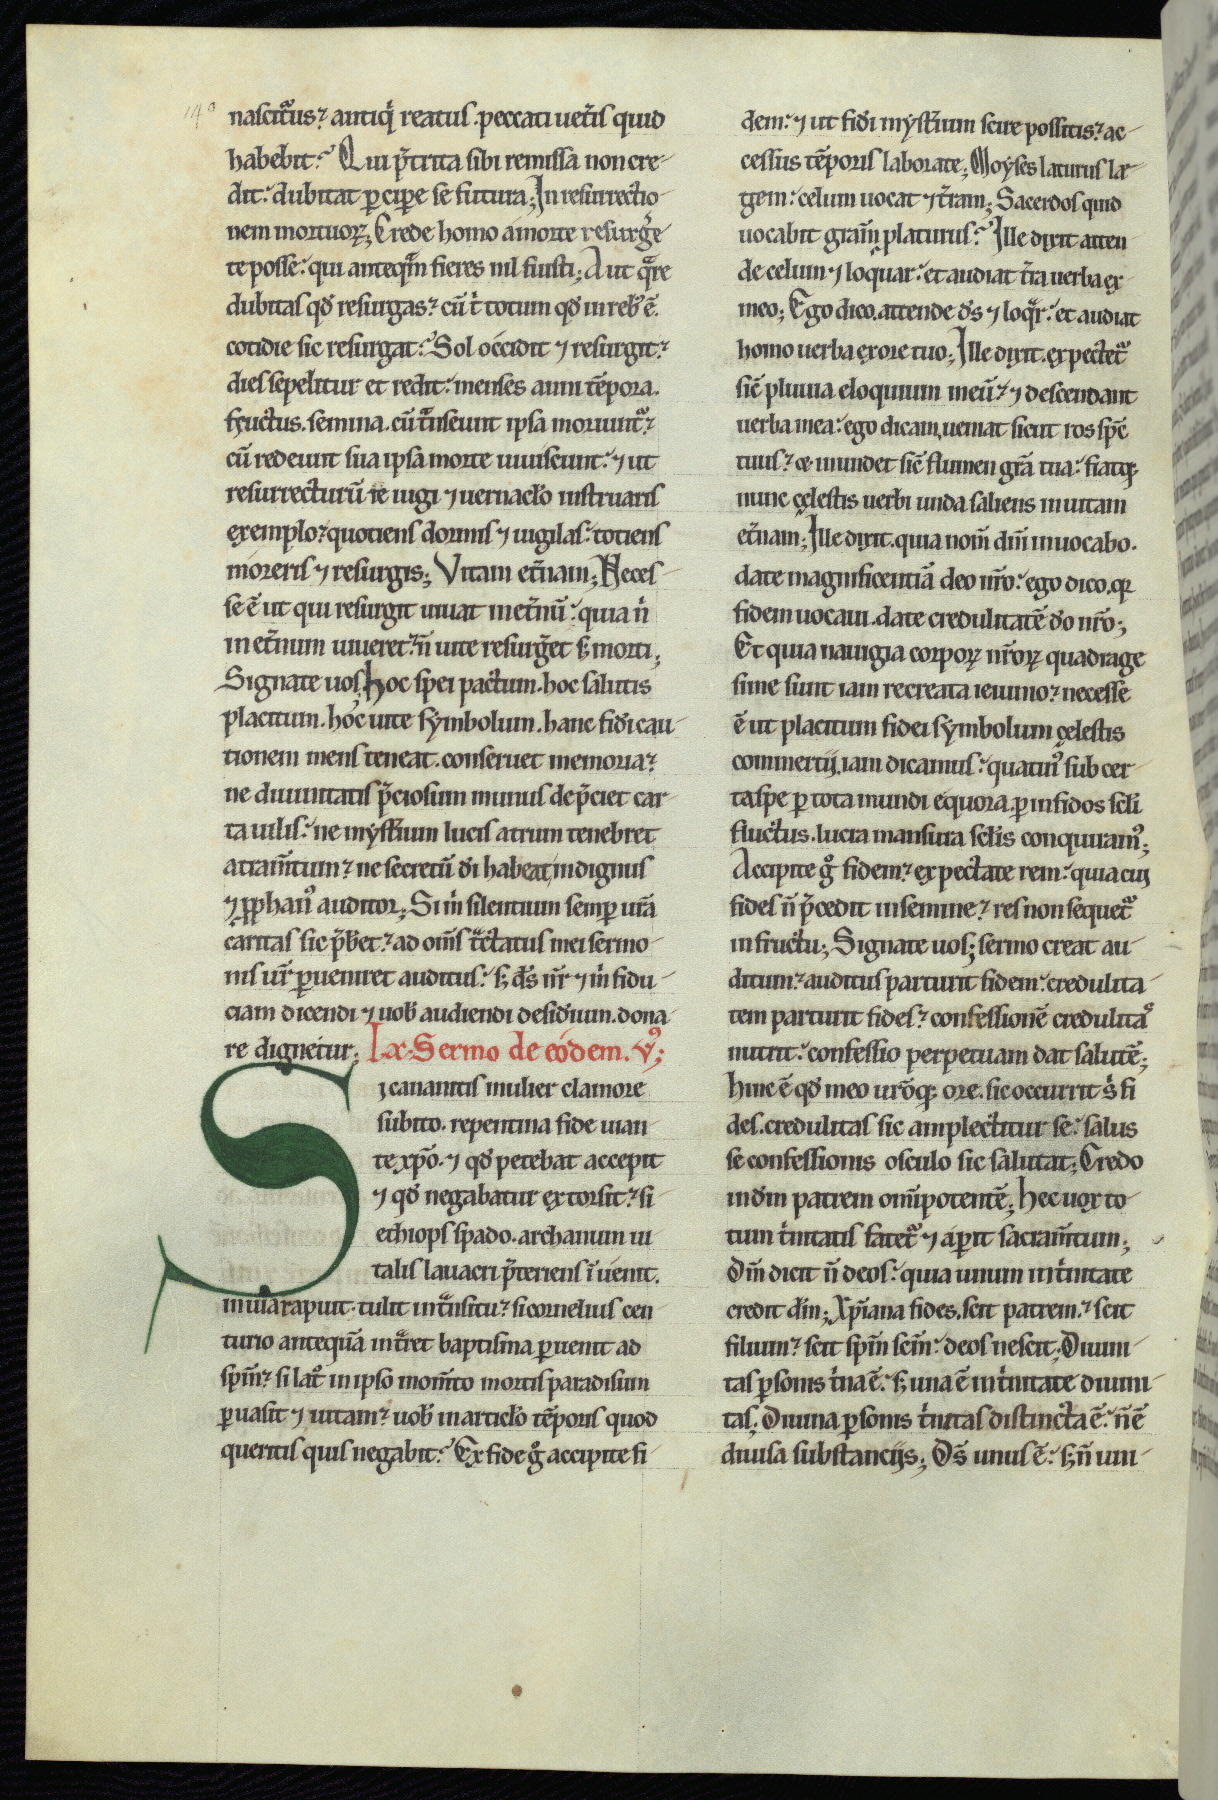 140
nascit᷑us? antiq̇ reatus. peccati uet̄is quid
habebit? Qui p̄t̄ita sibi remissa non cre-
dit: dubitat ꝑciꝑe se futura; In resurrectio
nem mortuoꝝ; Crede homo a morte resurg̃e
te posse: qui anteq̃m fieres nil fuisti; Aut q̃re
dubitas qd̓ resurgas? cū t̓ totum qd̓ in reb᷒ ē.
cotidie sic resurgat? Sol occidit ⁊ resurgit?
dies sepelitur et redit: menses anni tēpora.
fructus. semina. cū t̃nseunt ipsa moriunt᷑?
cū redeunt sua ipsa morte uiuiscunt: ⁊ ut
resurrecturū te iugi ⁊ uernac̄lo instruaris
exemplo? quotiens dormis ⁊ uigilas: totiens
moreris ⁊ resurgis; Vitam et̄nam; Neces-
se ē ut qui resurgit uiuat in et̄nū: quia ṅ
in et̄num uiueret? n̄ uite resurg̃et s; morti;
Signate uos; hoc spei pactum. hoc salutis
placitum. hoc uite symbolum. hanc fidi cau-
tionem mens teneat. conseruet memoria?
ne diuinitatis p̄ciosum munus dep̄ciet car-
ta uilis: ne mysт̄ium lucis atrum tenebret
atram̄tum? ne secretū di habeat, indignus
⁊ ꝓphan᷒ auditor; Si in silentium semꝑ ur̄a
caritas sic p̄bet? ad om̄s t̃ctatus mei sermo-
nis ur̄ ꝑueniret auditus: s; ds̄ nr̄ ⁊ m̓ fidu-
ciam dicendi ⁊ uob̓ audiendi desid̓ium. dona-
re dignetur; Lx. Sermo de eodem. v᷒;
Si cananitis mulier clamore
subito. repentina fide uian
te xp̄o. ⁊ qd̓ petebat accepit
⁊ qd̓ negabatur extorsit? si
ethiops spado. archanum ui
talis lauacri p̄teriens īuenit.
in uia rapuit. tulit in t̃nsitu? si cornelius cen
turio antequā int̃ret baptisma ꝑuenit ad
spm̄? si lat᷑o in ipso mom̄to mortis paradisum
ꝑuasit ⁊ uitam? uob̓ in artic̄lo tēporis quod
queritis quis negabit? Ex fide g̊ accipite fi
dem: ⁊ ut fidi mysт̄ium scire possitis? ac-
cessus tēporis laborate; Moyses laturus le-
gem: celum uocat ⁊ t̄ram; Sacerdos quid
uocabit gram̄ platurus? Ille dixit atten
de celum ⁊ loquar: et audiat t̄ra uerba ex
meo; Ego dico. attende ds̄ ⁊ loq̃r: et audiat
homo uerba ex ore tuo; Ille dixit. expectet᷑
sic̄ pluuia eloquium meū? ⁊ descendant
uerba mea: ego dicam, ueniat sicut ros spc̄
tuus? & inundet sic̄ flumen gr̄a tua: fiatq;
nunc cęlestis uerbi unda saliens in uitam
et̄nam; Ille dixit. quia nom̄ dn̄i inuocabo.
date magnificentiā deo nr̄o: ego dico. qꝛ
fidem uocaui. date credulitatē do nr̄o;
Et quia nauigia corpoꝝ nr̄oꝝ quadrage
sime sunt iam recreata ieiunio? necesse
ē ut placitum fidei symbolum cęlestis
commertij. iam dicamus: quatin᷒ sub cer
ta spe ꝑ tota mundi equora. ꝑ infidos sc̄li
fluctus. lucra mansura sc̄lis conquiram᷒;
Accipite g̊ fidem? expectate rem: quia cuj
fides n̄ p̄cedit in semine? res non sequet᷑
in fructu; Signate uos; sermo creat au-
ditum? auditus parturit fidem: credulita-
tem parturit fides? confessionē credulita᷑
nutrit: confessio perpetuam dat salutē;
hinc ē qd̓ meo ur̄oq; ore. sic occurrit s̓ fi
des. credulitas sic amplectitur se: salus
se confessionis osculo sic salutat; Credo
in dm̄ patrem om̄ipotentē; Hec uox to-
tum t̓nitatis fatet᷑ ⁊ aꝑit sacram̄tum;
Dm̄ dicit n̄ deos: quia unum in t̓nitate
credit dm̄; Xp̄iana fides. scit patrem? scit
filium? scit spm̄ scm̄: deos nescit; Diuini-
tas ꝑsonis t̓na ē: s; una ē in t̓nitate diuini-
tas; Diuina ꝑsonis t̓nitas distincta ē: n̄ ē
diuisa substancijs; Ds̄ unus ē: s; n̄ uni-